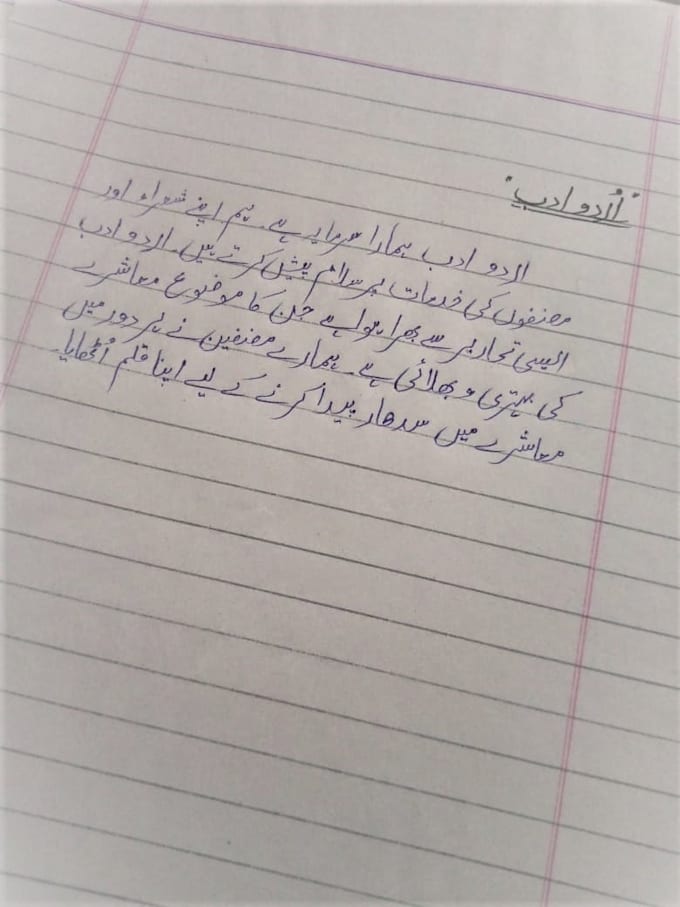 "اُردو ادب"
اردو ادب ہمارا سرمایہ ہے۔ ہم اپنے شعراء اور
مصنفوں کی خدمات پر سلام پیش کرتے ہیں۔ اردو ادب
ایسی تحاریر سے بھرا ہوا ہے جن کا موضوع معاشرے
کی بہتری و بھلائی ہے۔ ہمارے مصنفین نے ہر دور میں
معاشرے میں سدھار پیدا کرنے کے لیے اپنا قلم اُٹھایا۔